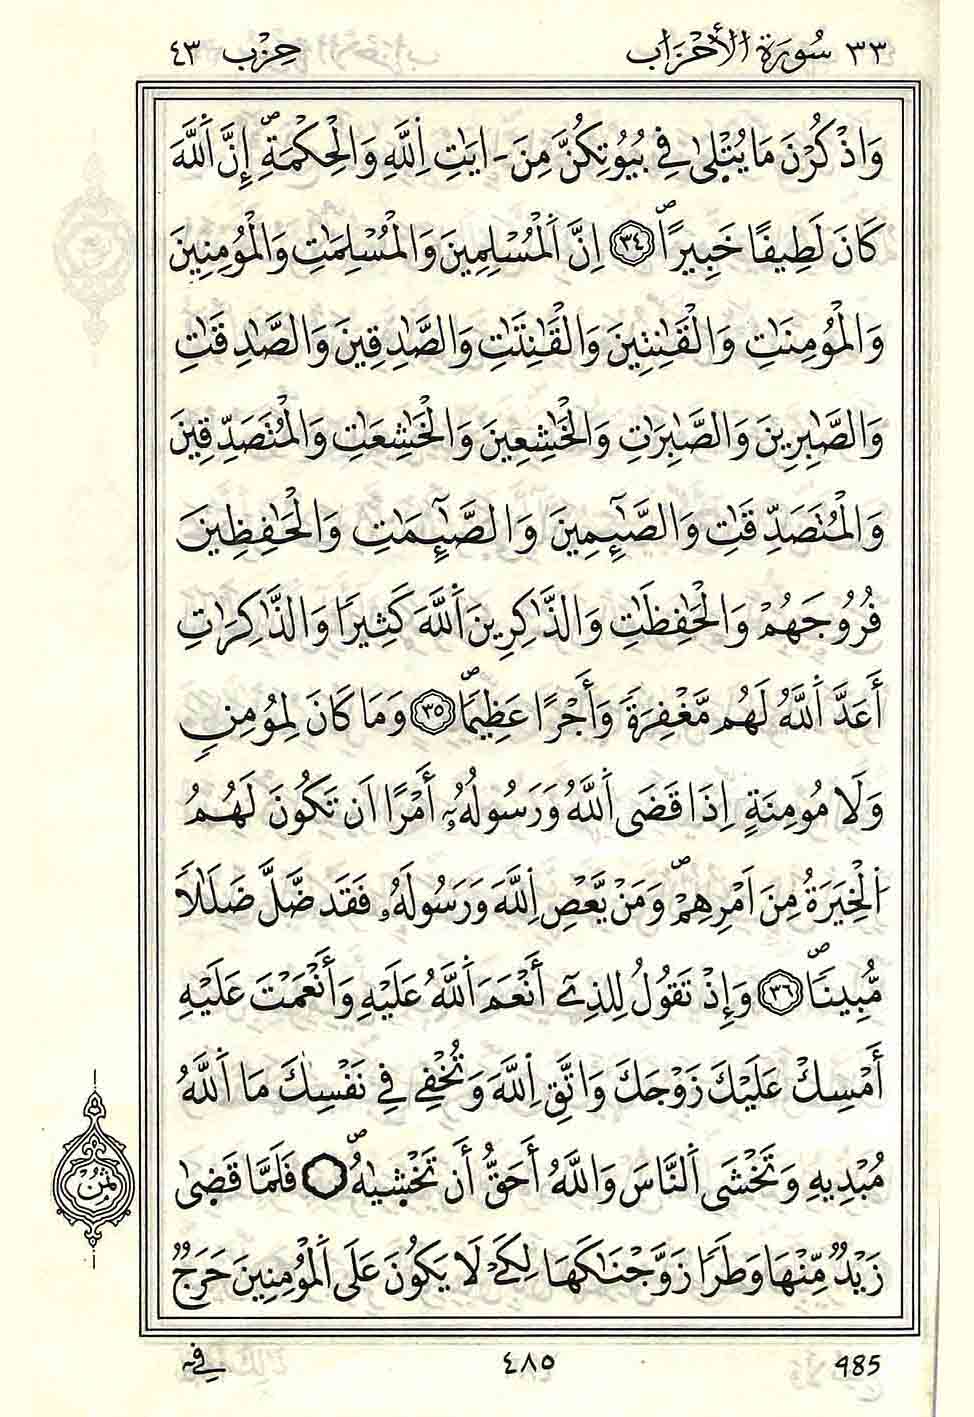 ٣٣ سُورَةُ الأَحْزَاب حِزْب ٤٣
وَاذْكُرْنَ مَا يُتْلَىٰ فِي بُيُوتِكُنَّ مِنَ ـ ايَٰتِ اِ۬للَّهِ وَالْحِكْمَةِۖ إِنَّ اَ۬للَّهَ
كَانَ لَطِيفًا خَبِيرًاۖ ٣٤ اِنَّ اَ۬لْمُسْلِمِينَ وَالْمُسْلِمَٰتِ وَالْمُومِنِينَ
وَالْمُومِنَٰتِ وَالْقَٰنِتِينَ وَالْقَٰنِتَٰتِ وَالصَّٰدِقِينَ وَالصَّٰدِقَٰتِ
وَالصَّٰبِرِينَ وَالصَّٰبِرَٰتِ وَالْخَٰشِعِينَ وَالْخَٰشِعَٰتِ وَالْمُتَصَدِّقِينَ
وَالْمُتَصَدِّقَٰتِ وَالصَّٰٓئِمِينَ وَالصَّٰٓئِمَٰتِ وَالْحَٰفِظِينَ
فُرُوجَهُمْ وَالْحَٰفِظَٰتِ وَالذَّٰكِرِينَ اَ۬للَّهَ كَثِيرًا وَالذَّٰكِرَٰتِ
أَعَدَّ اَ۬للَّهُ لَهُم مَّغْفِرَةً وَأَجْرًا عَظِيمًاۖ ٣٥ وَمَا كَانَ لِمُومِنٍ
وَلَا مُومِنَةٍ اِذَا قَضَى اَ۬للَّهُ وَرَسُولُهُۥٓ أَمْرًا اَن تَكُونَ لَهُمُ
اُ۬لْخِيَرَةُ مِنَ اَمْرِهِمْۖ وَمَنْ يَّعْصِ اِ۬للَّهَ وَرَسُولَهُۥ فَقَد ضَّلَّ ضَلَٰلًا
مُّبِينًاۖ ٣٦ وَإِذْ تَقُولُ لِلذِےٓ أَنْعَمَ اَ۬للَّهُ عَلَيْهِ وَأَنْعَمْتَ عَلَيْهِ
أَمْسِكْ عَلَيْكَ زَوْجَكَ وَاتَّقِ اِ۬للَّهَ وَتُخْفِے فِي نَفْسِكَ مَا اَ۬للَّهُ
مُبْدِيهِ وَتَخْشَى اَ۬لنَّاسَ وَاللَّهُ أَحَقُّ أَن تَخْشَىٰهُۖ فَلَمَّا قَضَىٰ
ثُمُن
زَيْدٌ مِّنْهَا وَطَرًا زَوَّجْنَٰكَهَا لِكَےْ لَا يَكُونَ عَلَى اَ۬لْمُومِنِينَ حَرَجٌ
485 ٤٨٥ فِي